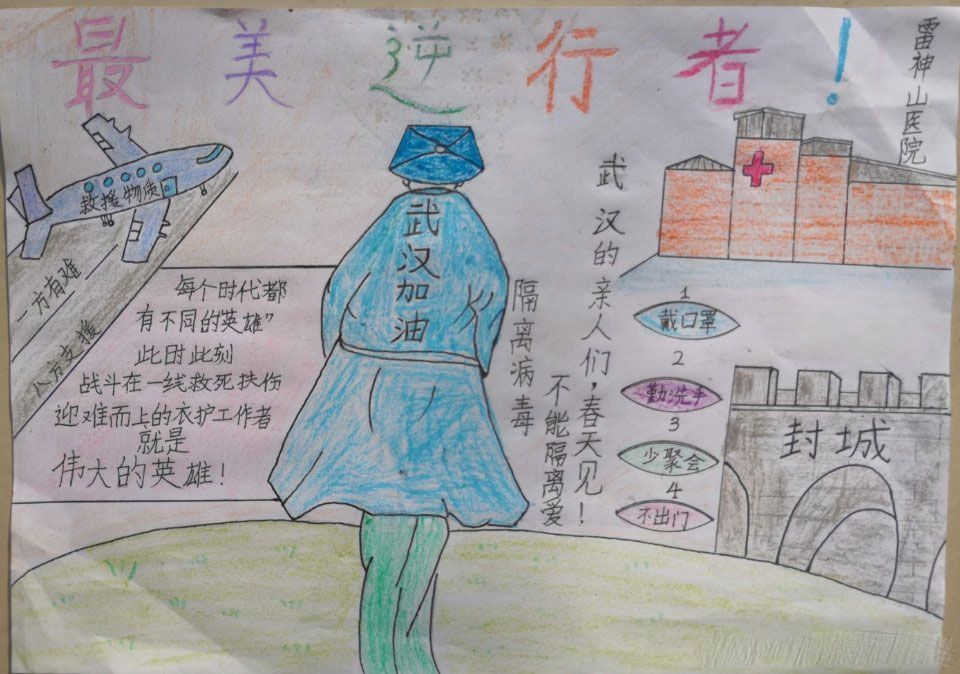 最美逆行者！
雷神山医院
救援物质
一方有难
八方支援
每个时代都
有不同的英雄”
此时此刻
战斗在一线救死扶伤
迎难而上的衣护工作者
就是
伟大的英雄！
武汉加油
隔离病毒
不能隔离爱
武汉的亲人们，春天见！
1
戴口罩
2
勤洗手
3
少聚会
4
不出门
封城